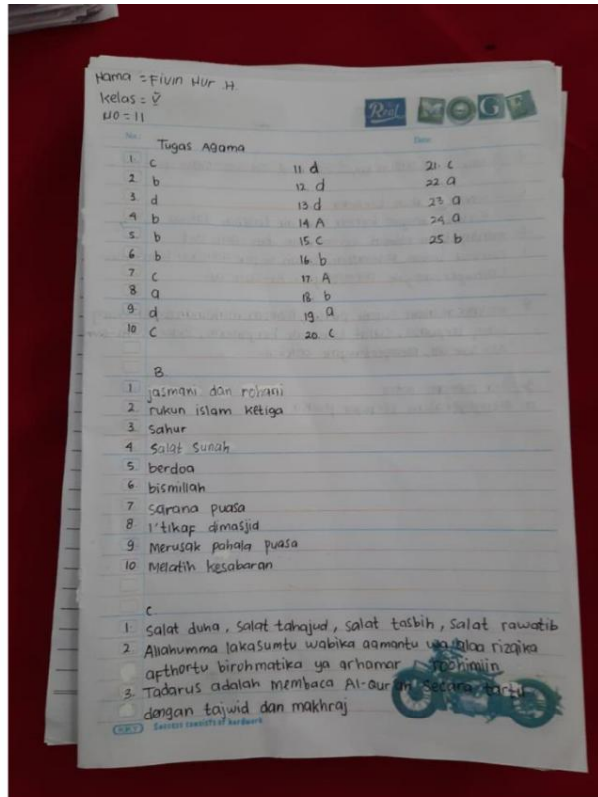 Nama = Fivin Nur .H.
Kelas = V
NO = 11
Real MOGE
No. Date
Tugas Agama
1. c
2 b
3. d
4 b
5. b
6 b
7. c
8 a
9. d
10 c
11. d
12. d
13 d
14 A
15. C
16. b
17. A
18. b
19. a
20. c
21. c
22 a
23 a
24 a
25. b
B.
1 jasmani dan rohani
2. rukun islam ketiga
3. sahur
4 Salat sunah
5. berdoa
6. bismillah
7 sarana puasa
8. i'tikaf dimasjid
9 Merusak pahala puasa
10 Melatih kesabaran
C.
1. Salat duha, salat tahajud, salat tasbih, salat rawatib
2 Allahumma lakasumtu wabika aamantu wa alaa rizqika
afthortu birohmatika ya arhamar roohimiin
3. Tadarus adalah membaca Al-Qur'an secara tartil
dengan tajwid dan makhraj
Success consists of hardwork